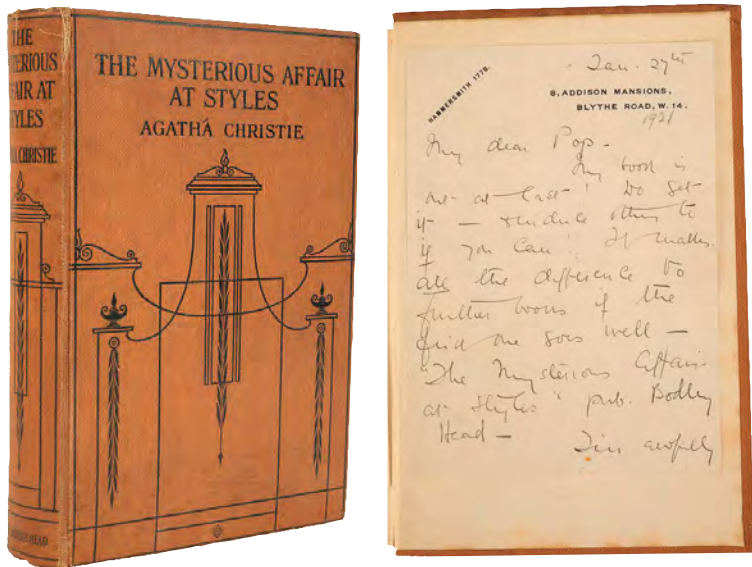 THE
MYSTERIOUS
AFFAIR AT
STYLES
AGATHA CHRISTIE
THE MYSTERIOUS AFFAIR
AT STYLES
AGATHA CHRISTIE
HAMMERSMITH 1776.
Jan. 27th
8, ADDISON MANSIONS,
BLYTHE ROAD, W. 14.
1921
My dear Pop -
My book is
out at last! Do get
it - & induce others to
if you can! It makes
all the difference to
further books if the
first one goes well -
"The Mysterious Affair
at Styles" pub. Bodley
Head -
I'm awfully